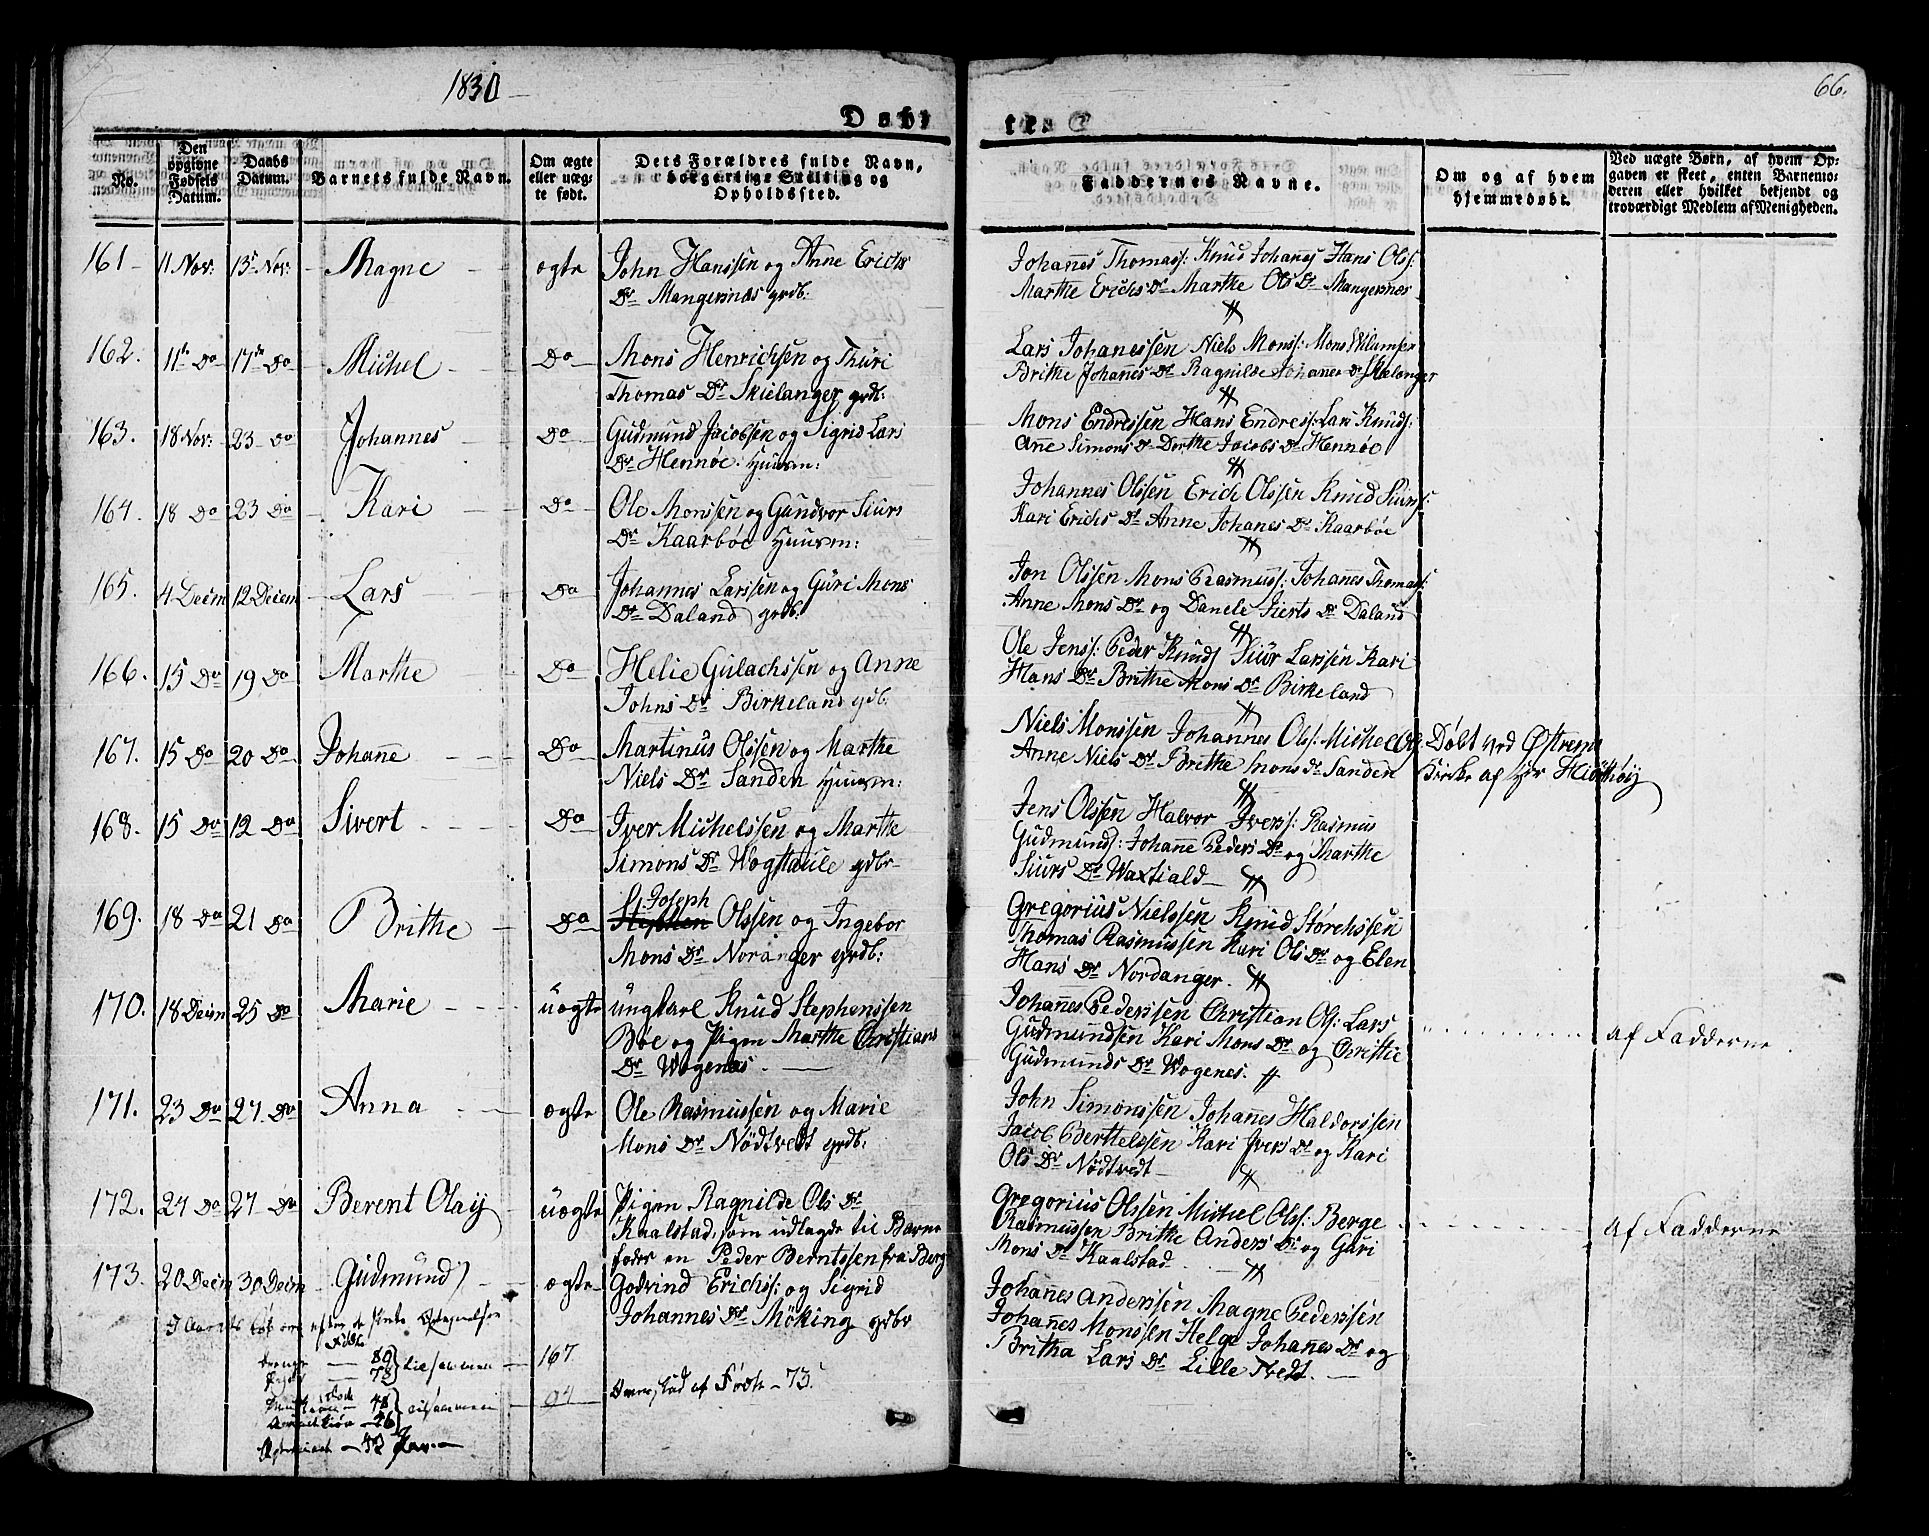 1830
66.
Døbte
No.
Den opgivne Fødsels Datum.
Daabs Datum.
Barnets fulde Navn.
Om ægte eller uægte født.
Dets Forældres fulde Navn, borgerlige Stilling og Opholdssted.
Faddernes Navne.
Om og af hvem hjemmedøbt.
Ved uægte Børn, af hvem Opgaven er skeet, enten Barnemoderen eller hvilket bekjendt og troværdigt Medlem af Menigheden.
161 11 Nov: 15 Nov: Magne ægte John Hanssen og Anne Erichs
Dr Mangersnæs grdb:
Johannes Thomass: Knud Johannes Hans Ols:
Marthe Erichs Dr Marthe Ols Dr Mangersnæs
162. 11te Do 17de Do Michel Do Mons Henrichsen og Thuri
Thomas Dr Skielanger grdb:
Lars Johanessen Niels Mons: Mons Wilumsen
Brithe Johannes Dr Ragnilde Johannes Dr Skielanger
163. 18 Nov: 23 Do Johannes Do Gudmund Jacobsen og Sigrid Lars
Dr Hennøe. Huusm:
Mons Endressen Hans Endres: Lars Knuds:
Anne Simons Dr Dorthe Jacobs Dr Hennøe
164. 18 Do 23 Do Kari Do Ole Monssen og Gundvor Siurs
Dr Kaarbøe Huusm:
Johannes Olssen Erich Olssen Knud Siurs:
Kari Erichs Dr Anne Johanes Dr Kaarbøe
165. 4 Decem 12 Decem Lars Do Johannes Larssen og Guri Mons
Dr Daland grdb:
Jon Olssen Mons Rasmuss: Johanes Thomas:
Anne Mons Dr og Danele Sierts Dr Daland
166. 15 Do 19 Do Marthe Do Helie Gulachssen og Anne
Johns Dr Birkeland gdb.
Ole Jenss: Peder Knuds Siur Larssen Kari
Hans Dr Brithe Mons Dr Birkeland
167. 15 Do 20 Do Johanne Do Martinus Olssen og Marthe
Niels Dr Sanden Huusm:
Niels Monssen Johannes Ols: Michel Ols:
Anne Niels Dr Brithe Mons Dr Sanden
Døbt ved Østrem
Kirke af Hr
168. 15 Do 12 Do Sivert Do Iver Michelssen og Marthe
Simons Dr Wogstaule gdbr
Jens Olssen Halvor Ivers: Rasmus
Gudmunds: Johanne Peders Dr og Marthe
Siurs Dr Waxtiald
169. 18 Do 21 Do Brithe Do Joseph
Olssen og Ingebor
Mons Dr Noranger grdb:
Gregorius Nielssen Knud Størchssen
Thomas Rasmussen Kari Ols Dr og Elen
Hans Dr Nordanger.
170. 18 Decem 25 Do Marie uægte ungkarl Knud Stephenssen
Bøe og Pigen Marthe Christians
Dr Wogenæs.
Johannes Pederssen Christian Ols: Lars
Gudmundsen Kari Mons Dr og Christie
Gudmunds Dr Wogenes.
af Fadderne
171. 23 Do 27 Do Anna ægte Ole Rasmussen og Marie
Mons Dr Nödtvedt grdb:
John Simonssen Johanes Haldorssen
Jacob Berthelssen Kari Ivers Dr og Kari
Ols Dr Nödtvedt
172. 24 Do 27 Do Berent Olay uægte Pigen Ragnilde Ols Dr
Kaalstad, som udlagde til Barne
fader en Peder Berntssen fra Berg
Gregorius Olssen Michel Olss: Berge
Rasmussen Brithe Anders Dr og Guri
Mons Dr Kaalstad
af Fadderne
173. 20 Decem 30 Decem Gudmund ægte Godvind Erichss: og Sigrid
Johannes Dr Möking gdbr
Johanes Anderssen Magne Pederssen
Johanes Monssen Helge Johanes Dr og
Britha Lars Dr Lille Tvedt.
Fødte
Drenge 89
Piger 78 tilsammen 167
Døde
48
46 tilsammen 94
Overskud af Fødte 73.
42 Par